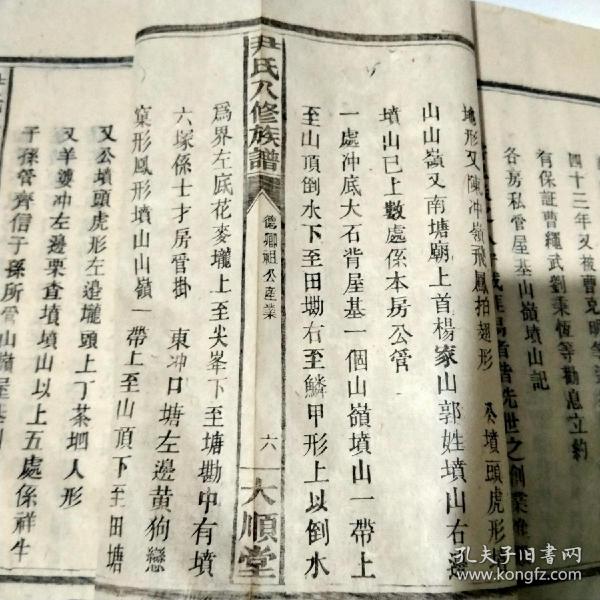 四十三年又被曹克明等
有保証曹繩武劉秉恆等勸息立約
各房私管屋基山嶺墳山記
先世之創業
地形又陳冲嶺飛鳳拍翅形 葵墳頭虎形
山山嶺又南塘廟上首楊家山郭姓墳山右邊
墳山已上數處係本房公管
一處冲底大石背屋基一個山嶺墳山一帶上
至山頂倒水下至田塝右至鱗甲形上以倒水
尹氏八修族譜
德卿祖公產業
六
大順堂
爲界左底花麥壠上至尖峯下至塘勘中有墳
六塚係士才房管掛 東冲口塘左邊黃狗戀
窠形鳳形墳山山嶺一帶上至山頂下至田塘
又公墳頭虎形左邊壠頭上丁茶垇人形
又羊婆冲左邊栗查墳墳山以上五處係祥牛
子孫管齊信子孫所管山嶺屋基
孔夫子旧书网
www.kongfz.com